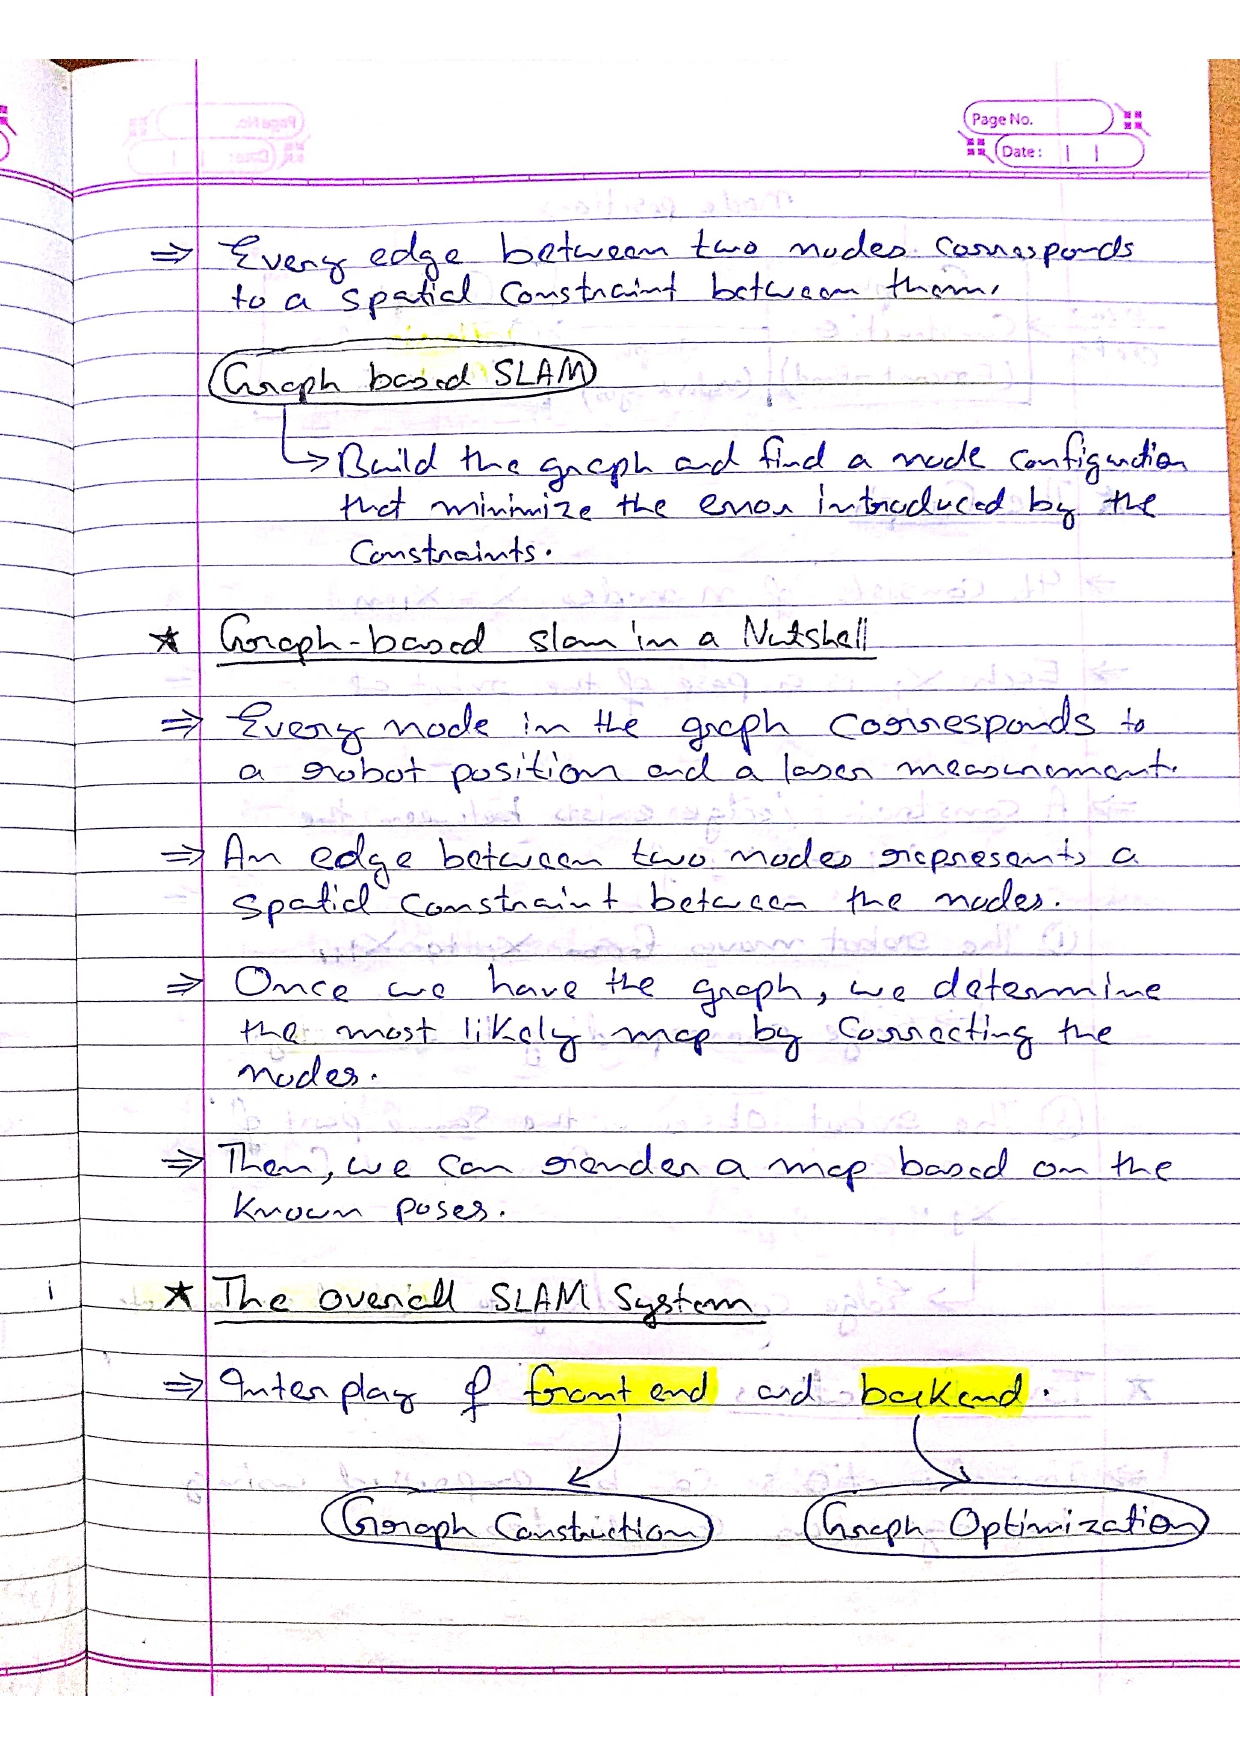 Page No.
Date :
⇒ Every edge between two nodes corresponds
to a spatial constraint between them.
Graph based SLAM
↳ Build the graph and find a node configuration
that minimize the error introduced by the
constraints.
★ Graph-based slam in a Nutshell
⇒ Every node in the graph corresponds to
a robot position and a laser measurement.
⇒ An edge between two nodes represents a
spatial constraint between the nodes.
⇒ Once we have the graph, we determine
the most likely map by correcting the
nodes.
⇒ Then, we can render a map based on the
known poses.
★ The overall SLAM System
⇒ Interplay of front end and backend.
Graph Construction Graph Optimization